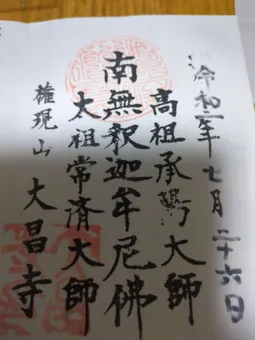 令和二年七月二十六日
高祖承陽大師
南無釈迦牟尼佛
太祖常済大師
権現山
大昌寺